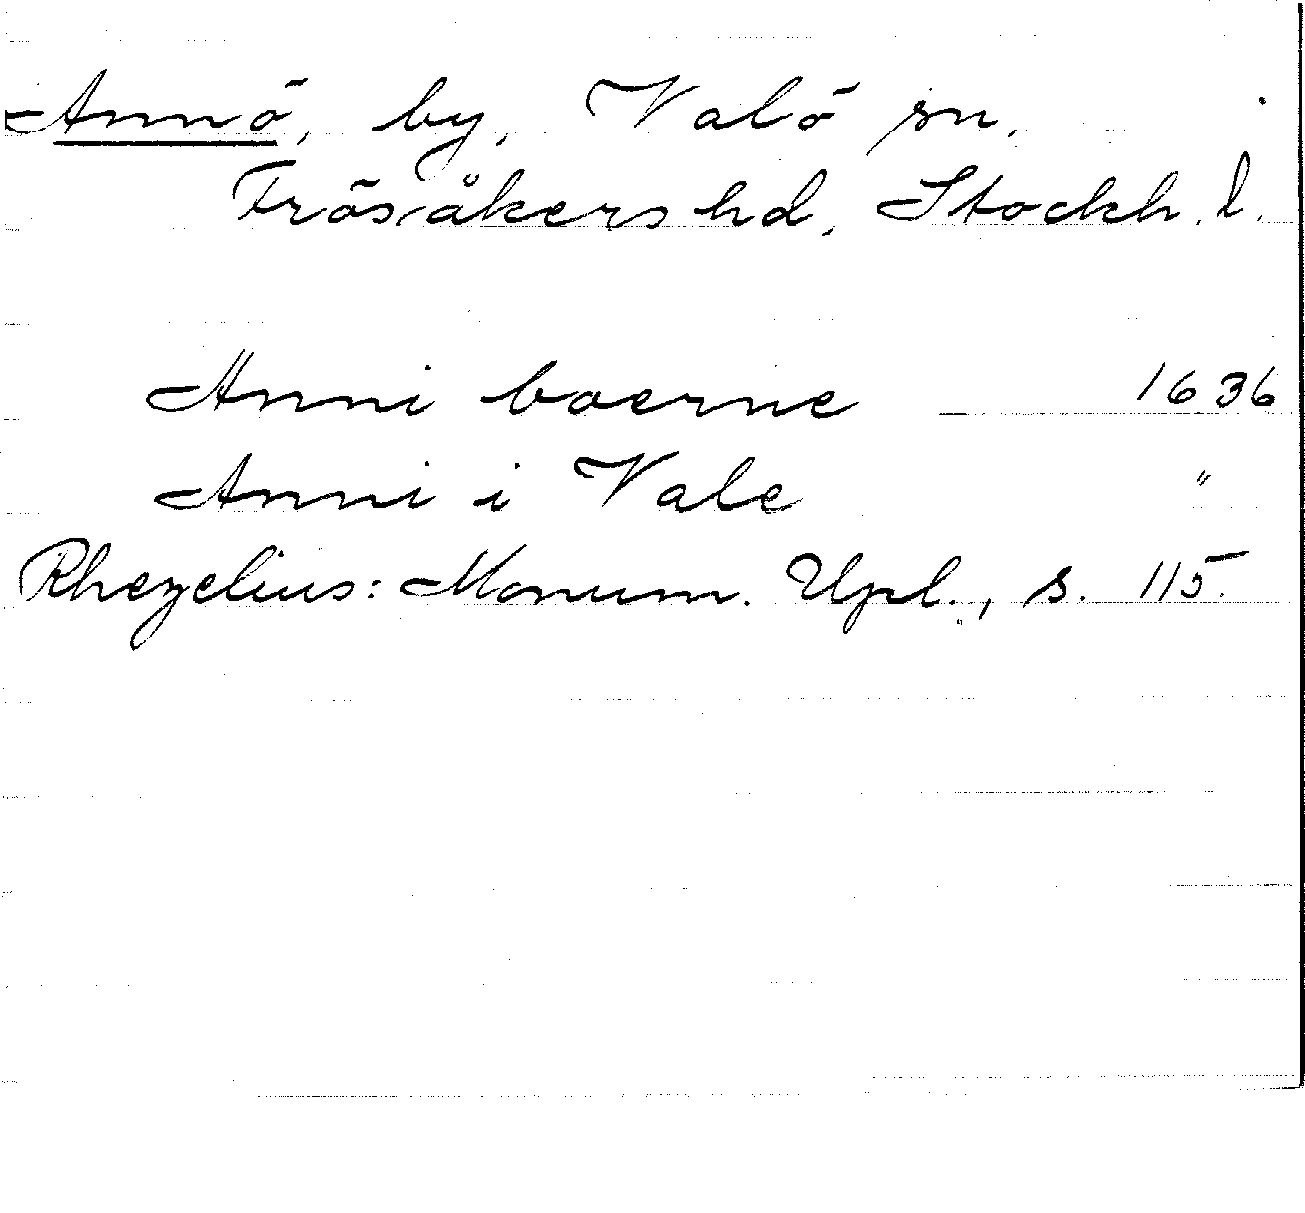 Annö, by, Valö sn,
Frösåkers hd, Stockh. l.
Anni boerne 1636
Anni i Vale "
Rhezelius: Monum. Upl., s. 115.